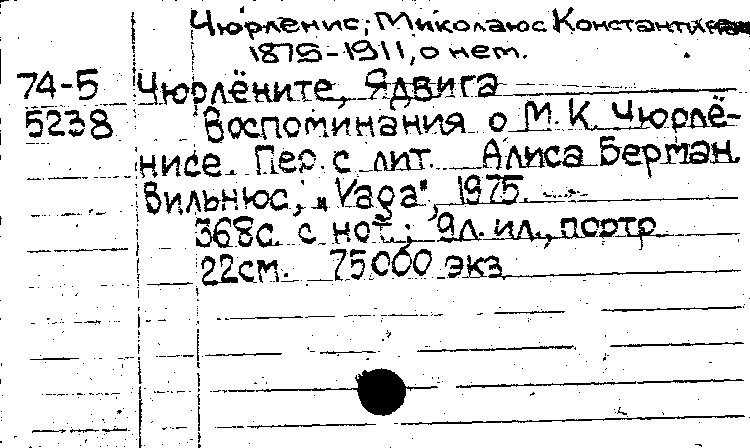 Чюрленис; Миколаюс Константинас
1875-1911, о нем.
74-5 Чюрлёните, Ядвига
5238 Воспоминания о М. К. Чюрлё-
нисе. Пер. с лит. Алиса Берман.
Вильнюс, „Vaga", 1975.
368с. с нот.; 9л. ил., портр.
22см. 75000 экз